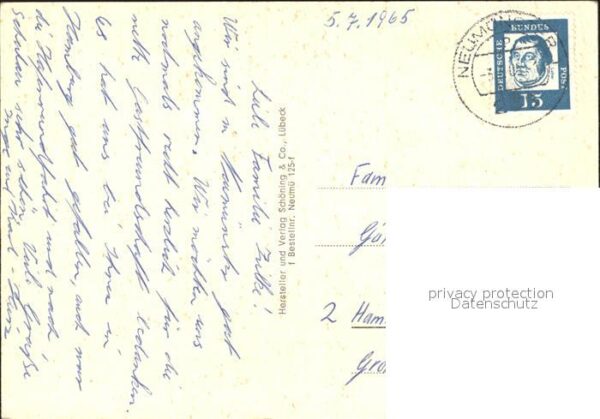 5.7.1965
NEUMÜNSTER
DEUTSCHE BUNDES POST
15
Liebe Familie
Wir sind in Neumünster gut
angekommen. Wir möchten uns
nochmals recht herzlich für die
nette Gastfreundschaft bedanken.
Es hat uns bei Ihnen in
Hamburg gut gefallen, auch war
die Hafenrundfahrt und nach
schauen sehr schön. Viel Grüße
Inge und Karl-Heinz
Hersteller und Verlag Schöning & Co., Lübeck
f Bestellnr. Neumü 125-f
Fam
Gör
2 Ham
Gro
privacy protection
Datenschutz